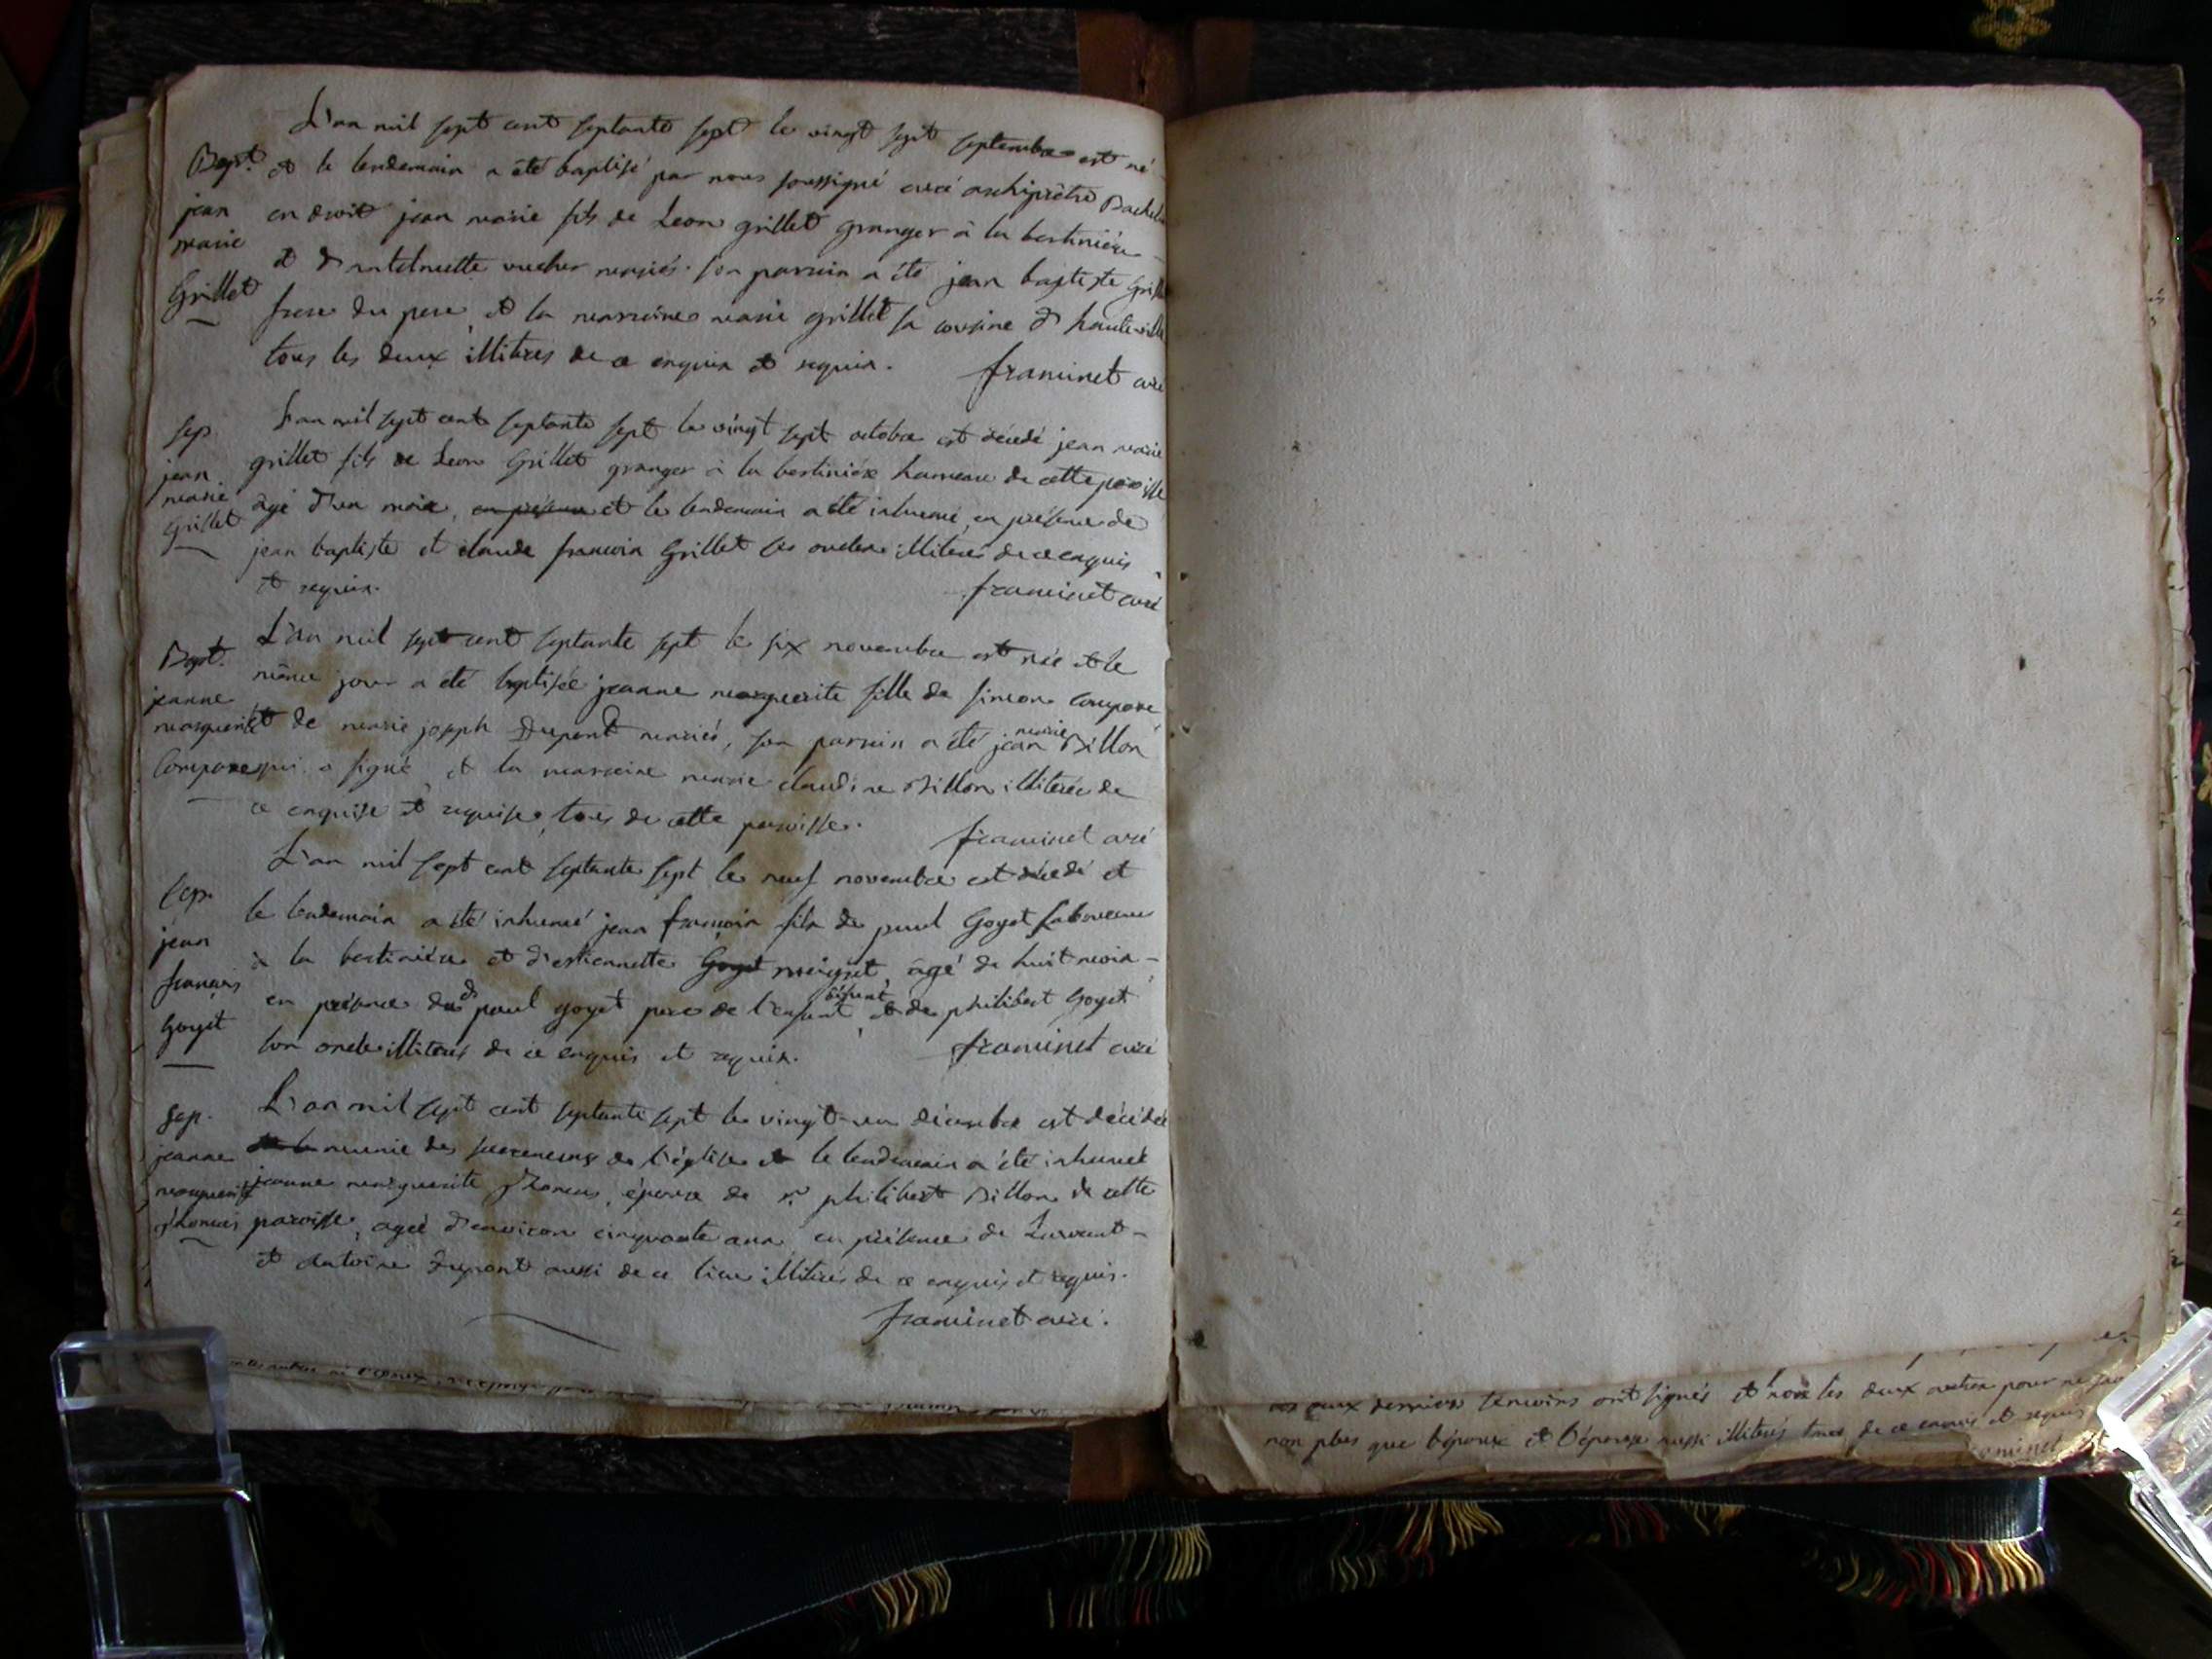 L'an mil sept cent septante sept le vingt sept septembre est né
Bapt. et le lendemain a été baptisé par nous soussigné curé archiprêtre Bachelie
jean en droit jean marie fils de Leon grillet granger à la bertinière
marie et d'antelmette mariés. son parrain a été jean baptiste Grille
Grillet frere du pere, et la marraine marie grillet sa cousine d'hauteville
tous les deux illiterés de ce enquis et requis. framinet curé
L'an mil sept cent septante sept le vingt sept octobre est décédé jean marie
Sep. grillet fils de Leon Grillet granger à la bertinière hameau de cette paroisse
jean
marie âgé d'un mois, en présence et le lendemain a été inhumé, en présence de
Grillet jean baptiste et claude francois Grillet ses oncles illiterés de ce enquis
et requis. framinet curé
L'an mil sept cent septante sept le six novembre est née et le
Bapt. même jour a été baptisée jeanne marguerite fille de simeon Compare
jeanne
marguerite et de marie joseph Dupont mariés, son parrain a été jean marie Billon
Compare qui a signé et la marraine marie claudine Billon illiterée de
ce enquise et requise, tous de cette paroisse. framinet curé
L'an mil sept cent septante sept le neuf novembre est décédé et
Sep. le lendemain a été inhumé jean francois fils de paul Goyet laboureur
jean à la bertinière et d'estiennette Goyet âgé de huit mois
francois en présence dud. paul goyet pere de l'enfant défunt, et de philibert Goyet
Goyet son oncle illiterés de ce enquis et requis. framinet curé
L'an mil sept cent septante sept le vingt un décembre est décédée
Sep. munie des sacremens de l'église et le lendemain a été inhumée
jeanne
marguerite jeanne marguerite épouse de sr philibert Billon de cette
paroisse, agée d'environ cinquante ans en présence de Laurent
et Antoine Dupont aussi de ce lieu illiterés de ce enquis et requis.
framinet curé.
deux derniers temoins ont signés et non les deux autres pour ne
non plus que l'époux et l'épouse aussi illiterés tous de ce enquis et requis